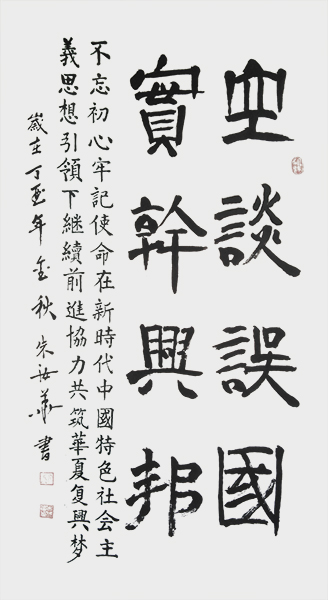 空談誤國
實幹興邦
不忘初心牢記使命在新時代中國特色社会主
義思想引領下継續前進協力共筑華夏复興梦
歲在丁酉年金秋朱安義書